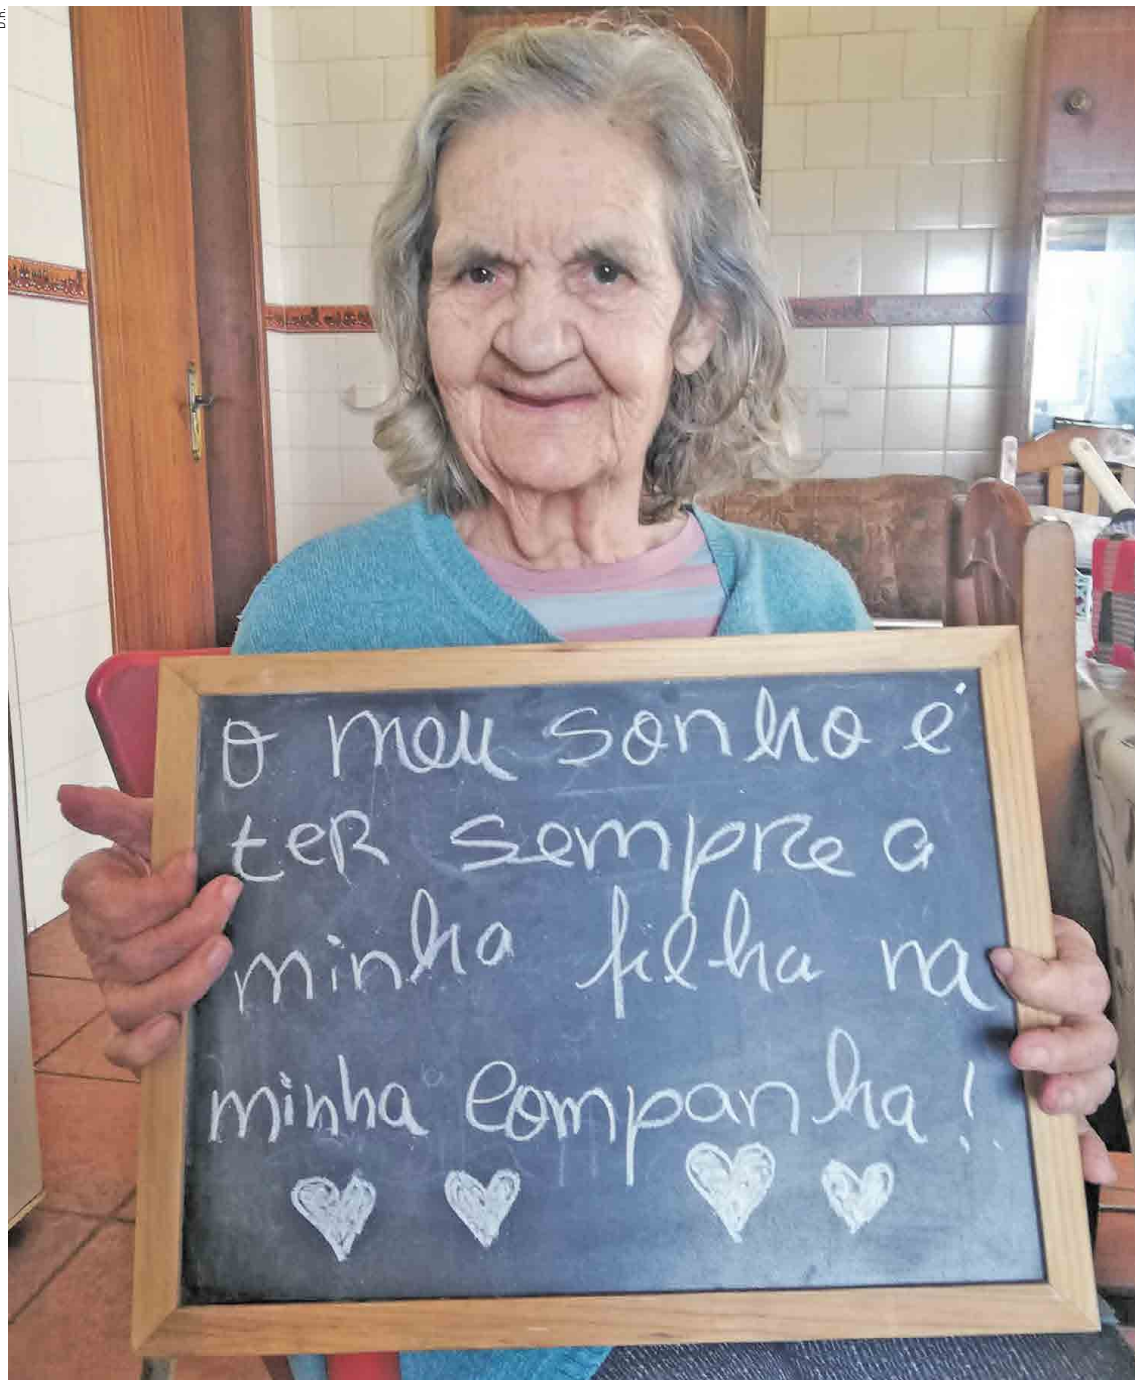 D.R.
O meu sonho é
teR sempRe a
minha filha na
minha companha!